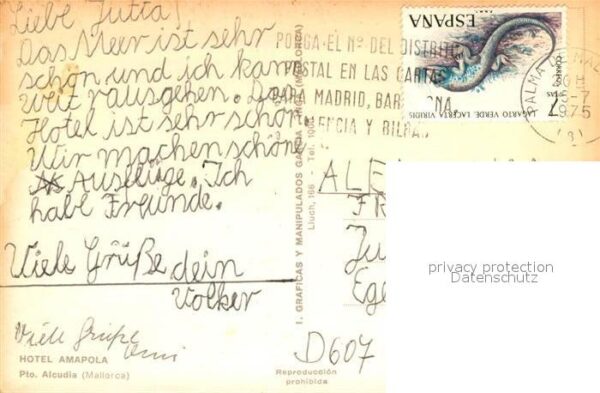 Liebe Jutta!
Das Meer ist sehr
schön und ich kann
weit rausgehen. Das
Hotel ist sehr schön.
Wir machen schöne
Ausflüge. Ich
habe Freunde.
Viele Grüße dein
Volker
Viele Grüße
HOTEL AMAPOLA
Pto. Alcudia (Mallorca)
I. GRAFICAS Y MANIPULADOS
Lluch, 166 - Tel.
Reproducción
prohibida
PONGA EL Nº DEL DISTRITO
POSTAL EN LAS CARTAS
PARA MADRID, BARCELONA
VALENCIA Y BILBAO
ESPAÑA
CORREOS
7 PTAS
LAGARTO VERDE LACERTA VIRIDIS
PALMA
1975
ALE
FR
Ju
Ege
D607
privacy protection
Datenschutz